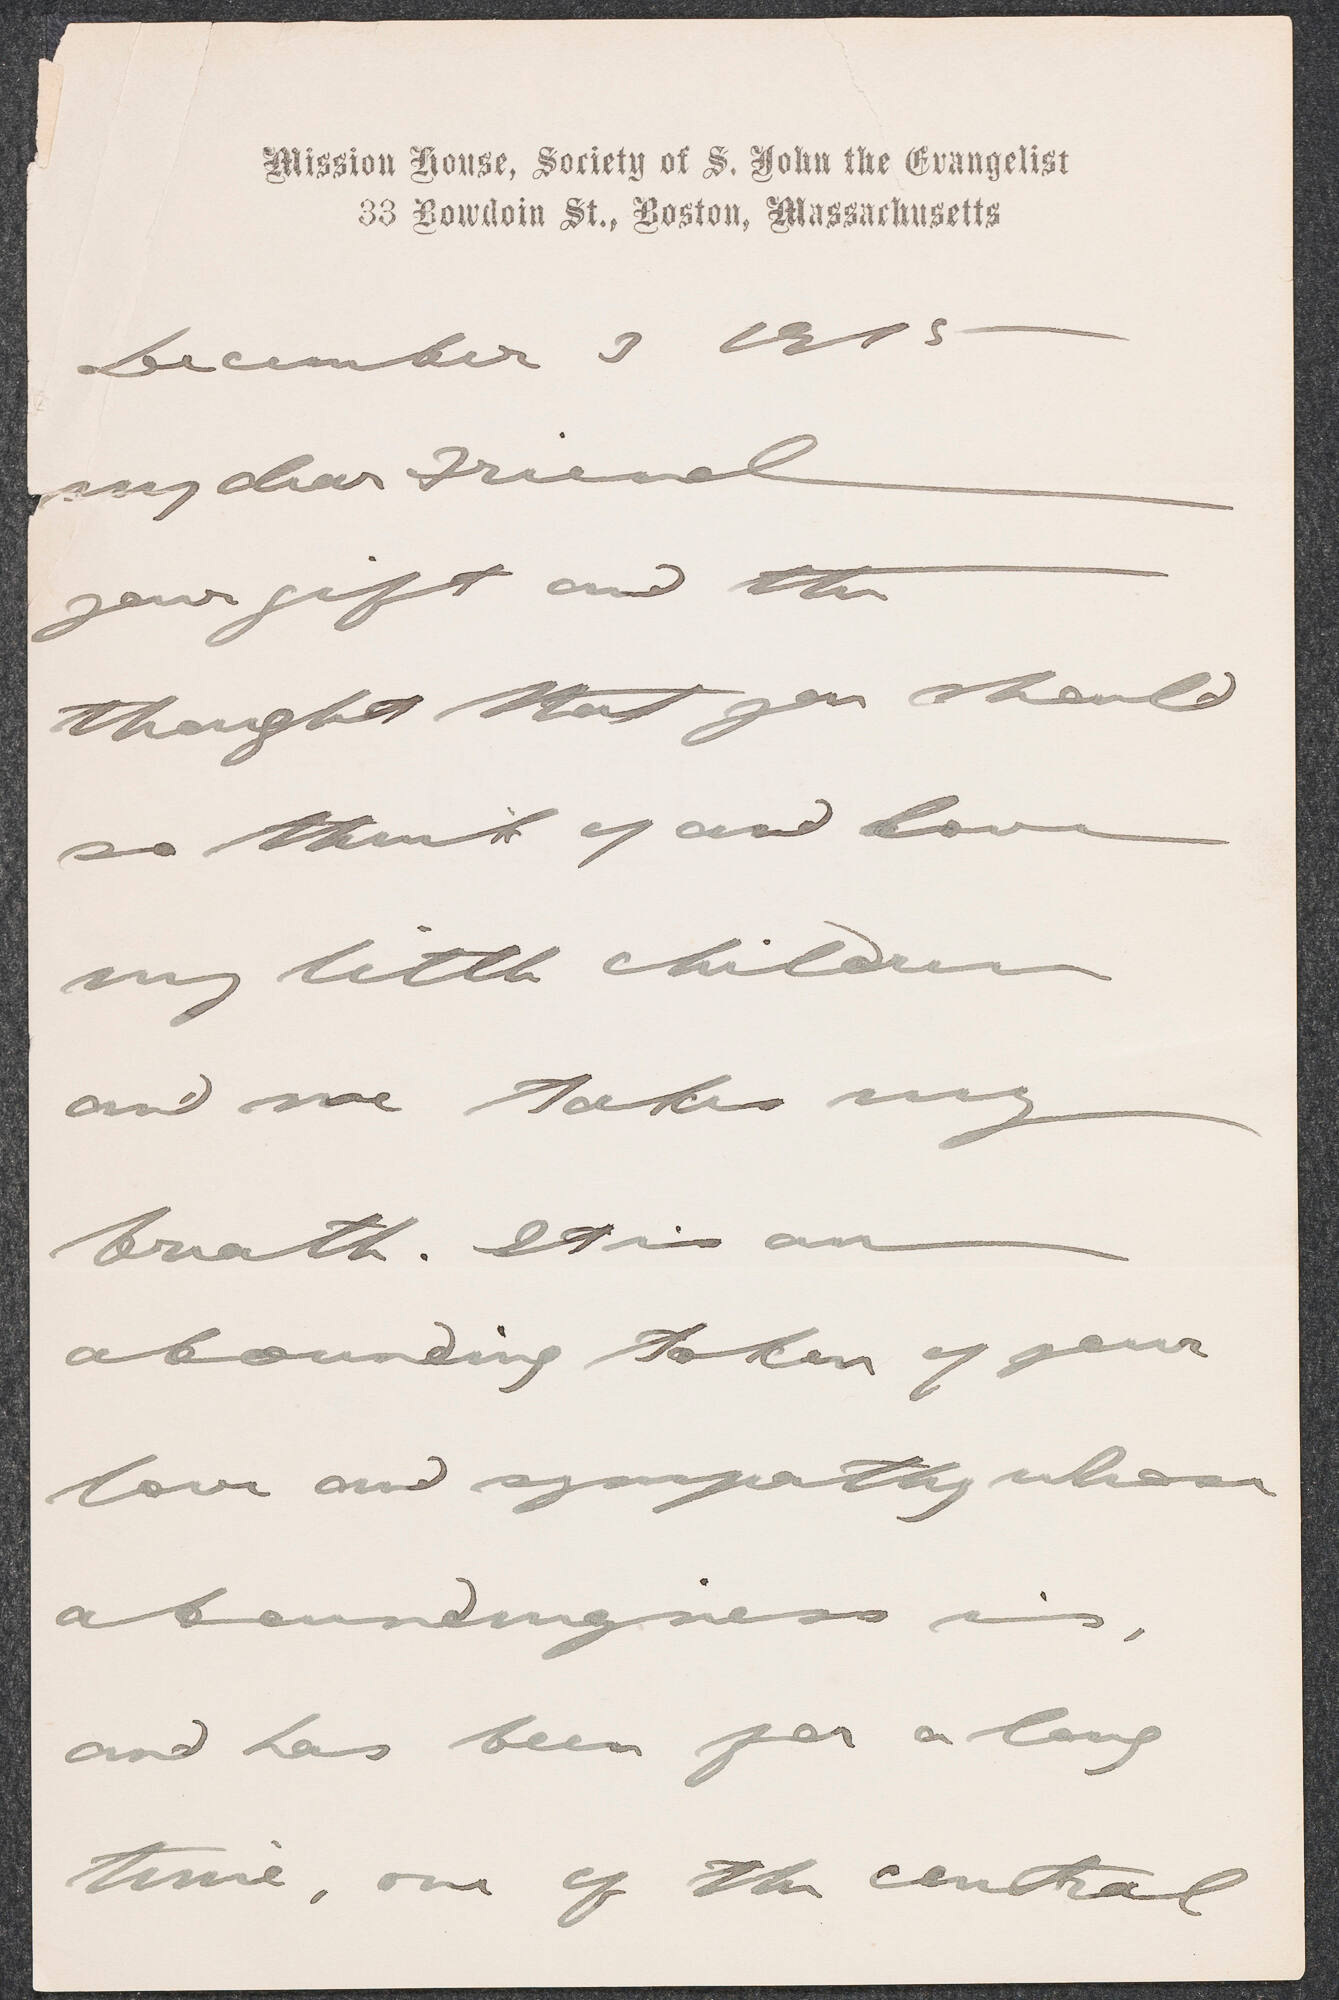 Mission House, Society of S. John the Evangelist
33 Bowdoin St., Boston, Massachusetts
December 3 1915
my dear Friend
your gift and the
thought that you should
so think of and love
my little children
and me takes my
breath. It is an
abounding token of your
love and sympathy whose
aboundingness is,
and has been for a long
time, one of the central